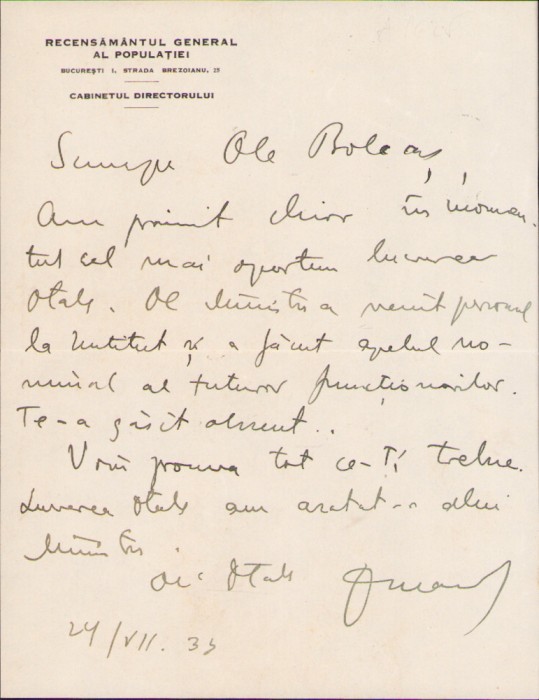 RECENSĂMÂNTUL GENERAL
AL POPULAȚIEI
BUCUREȘTI I, STRADA BREZOIANU, 25
CABINETUL DIRECTORULUI
Scumpe Dle
Am primit chiar în momen-
tul cel mai oportun lucrarea
Dtale. Dl Ministru a venit personal
la Institut și a făcut apelul no-
minal al tuturor funcționarilor.
Te-a găsit absent..
Vom tot ce-Ți trebue.
Lucrarea Dtale am aratat-o dlui
Ministru.
Dtale
24/VII.35